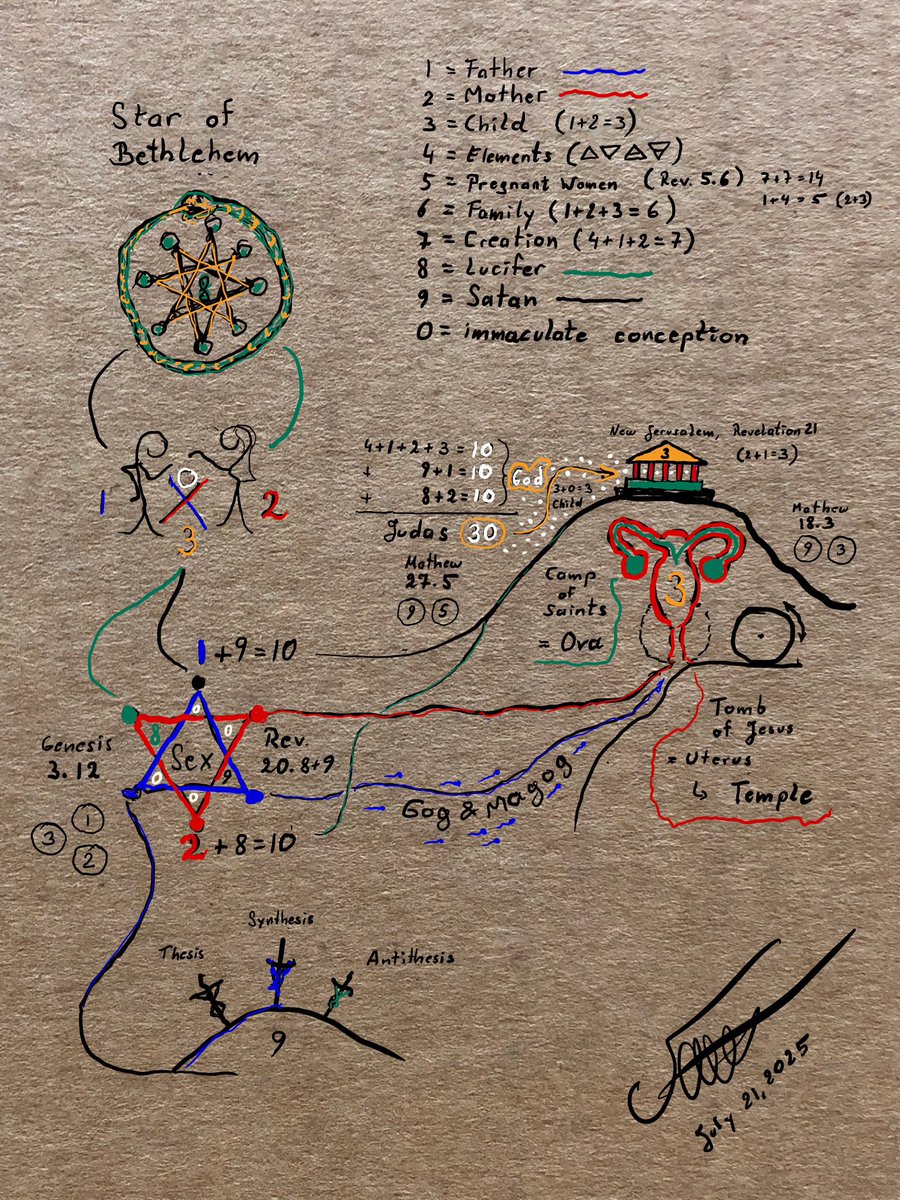 Star of
Bethlehem
1 = Father
2 = Mother
3 = Child (1+2=3)
4 = Elements (△▽△▽)
5 = Pregnant Women (Rev. 5.6) 7+7=14
1+4=5 (2+3)
6 = Family (1+2+3=6)
7 = Creation (4+1+2=7)
8 = Lucifer
9 = Satan
0 = immaculate conception
8
1
0
2
3
4+1+2+3=10
+ 9+1=10
+ 8+2=10
God
3+0=3
Child
Judas 30
Mathew
27.5
9 5
New Jerusalem, Revelation 21
(2+1=3)
3
Mathew
18.3
9 3
Camp
of
Saints
= Ova
3
1+9=10
Genesis
3.12
3 1
2
0
8 0
Sex
0 9
0
Rev.
20.8+9
2+8=10
Gog & Magog
Tomb
of Jesus
= Uterus
↳ Temple
Thesis
Synthesis
Antithesis
9
July 21, 2025